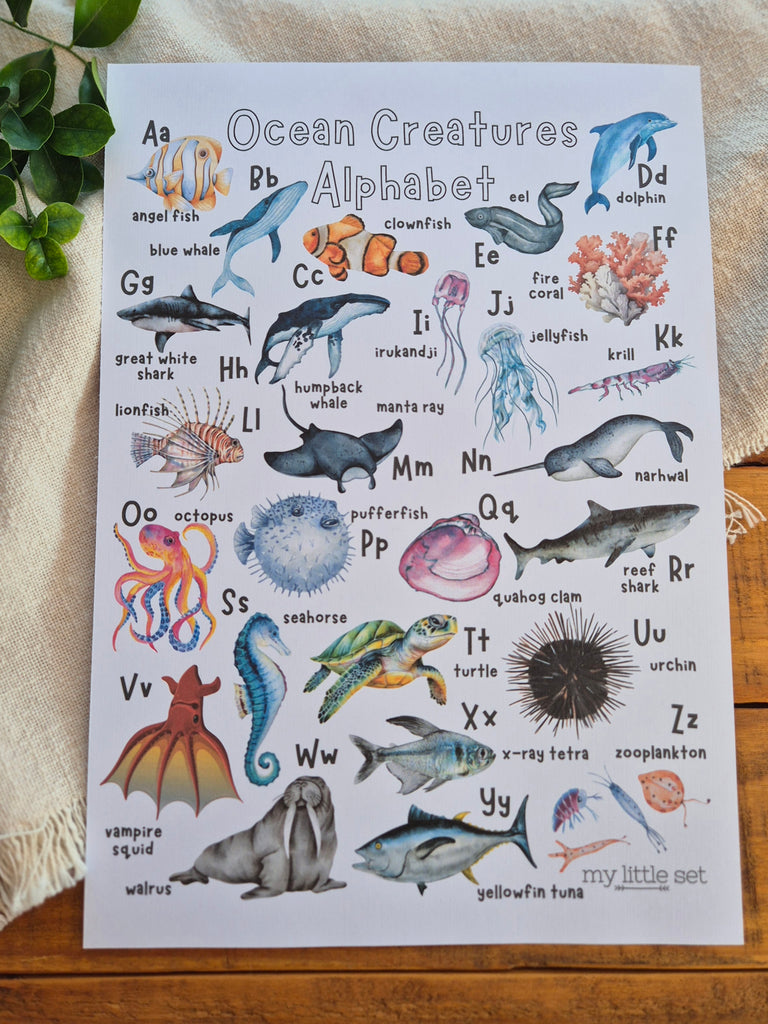 Ocean Creatures
Alphabet
Aa
angel fish
Bb
blue whale
Cc
clownfish
Dd
dolphin
Ee
eel
Ff
fire
coral
Gg
great white
shark
Hh
humpback
whale
Ii
irukandji
Jj
jellyfish
Kk
krill
Ll
lionfish
Mm
manta ray
Nn
narhwal
Oo
octopus
Pp
pufferfish
Qq
quahog clam
Rr
reef
shark
Ss
seahorse
Tt
turtle
Uu
urchin
Vv
vampire
squid
Ww
walrus
Xx
x-ray tetra
Yy
yellowfin tuna
Zz
zooplankton
my little set